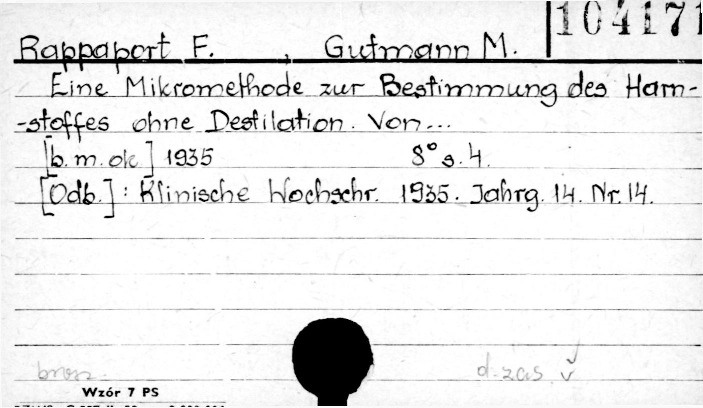 104171
Rappaport F. , Gutmann M.
Eine Mikromethode zur Bestimmung des Harn-
-stoffes ohne Destilation. Von...
[b.m.ok.] 1935 8° s. 4.
[Odb.]: Klinische Wochschr. 1935. Jahrg. 14. Nr. 14.
d. zas. v
Wzór 7 PS